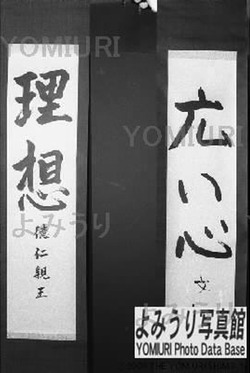 YOMIURI
理想
徳仁親王
よみうり
YOMIURI
広い心
文
よみうり写真館
YOMIURI Photo Data Base